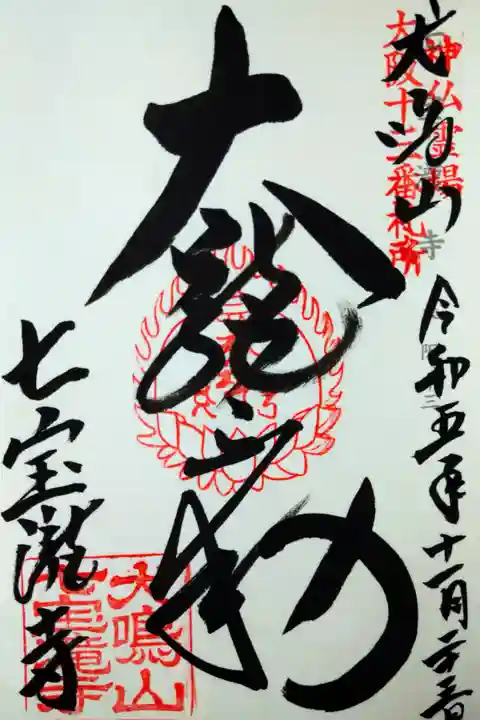 神仏霊場
大阪十二番札所
犬鳴山
令和五年十一月二十三日
大龍不動
七宝瀧寺
犬鳴山
七宝瀧寺